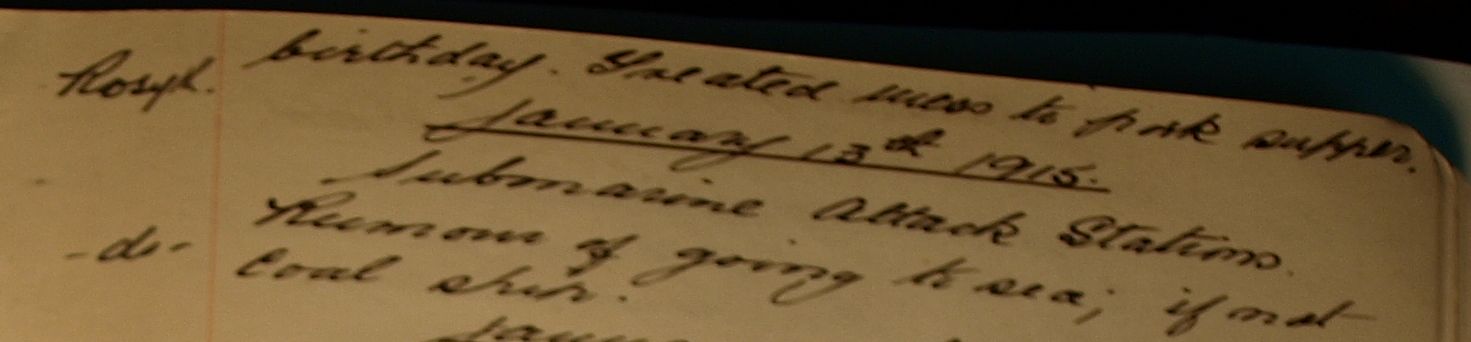 Rosyth. birthday. Treated mess to pork supper.
January 13th 1915.
Submarine Attack Stations.
-do- Rumour of going to sea; if not
coal ship.